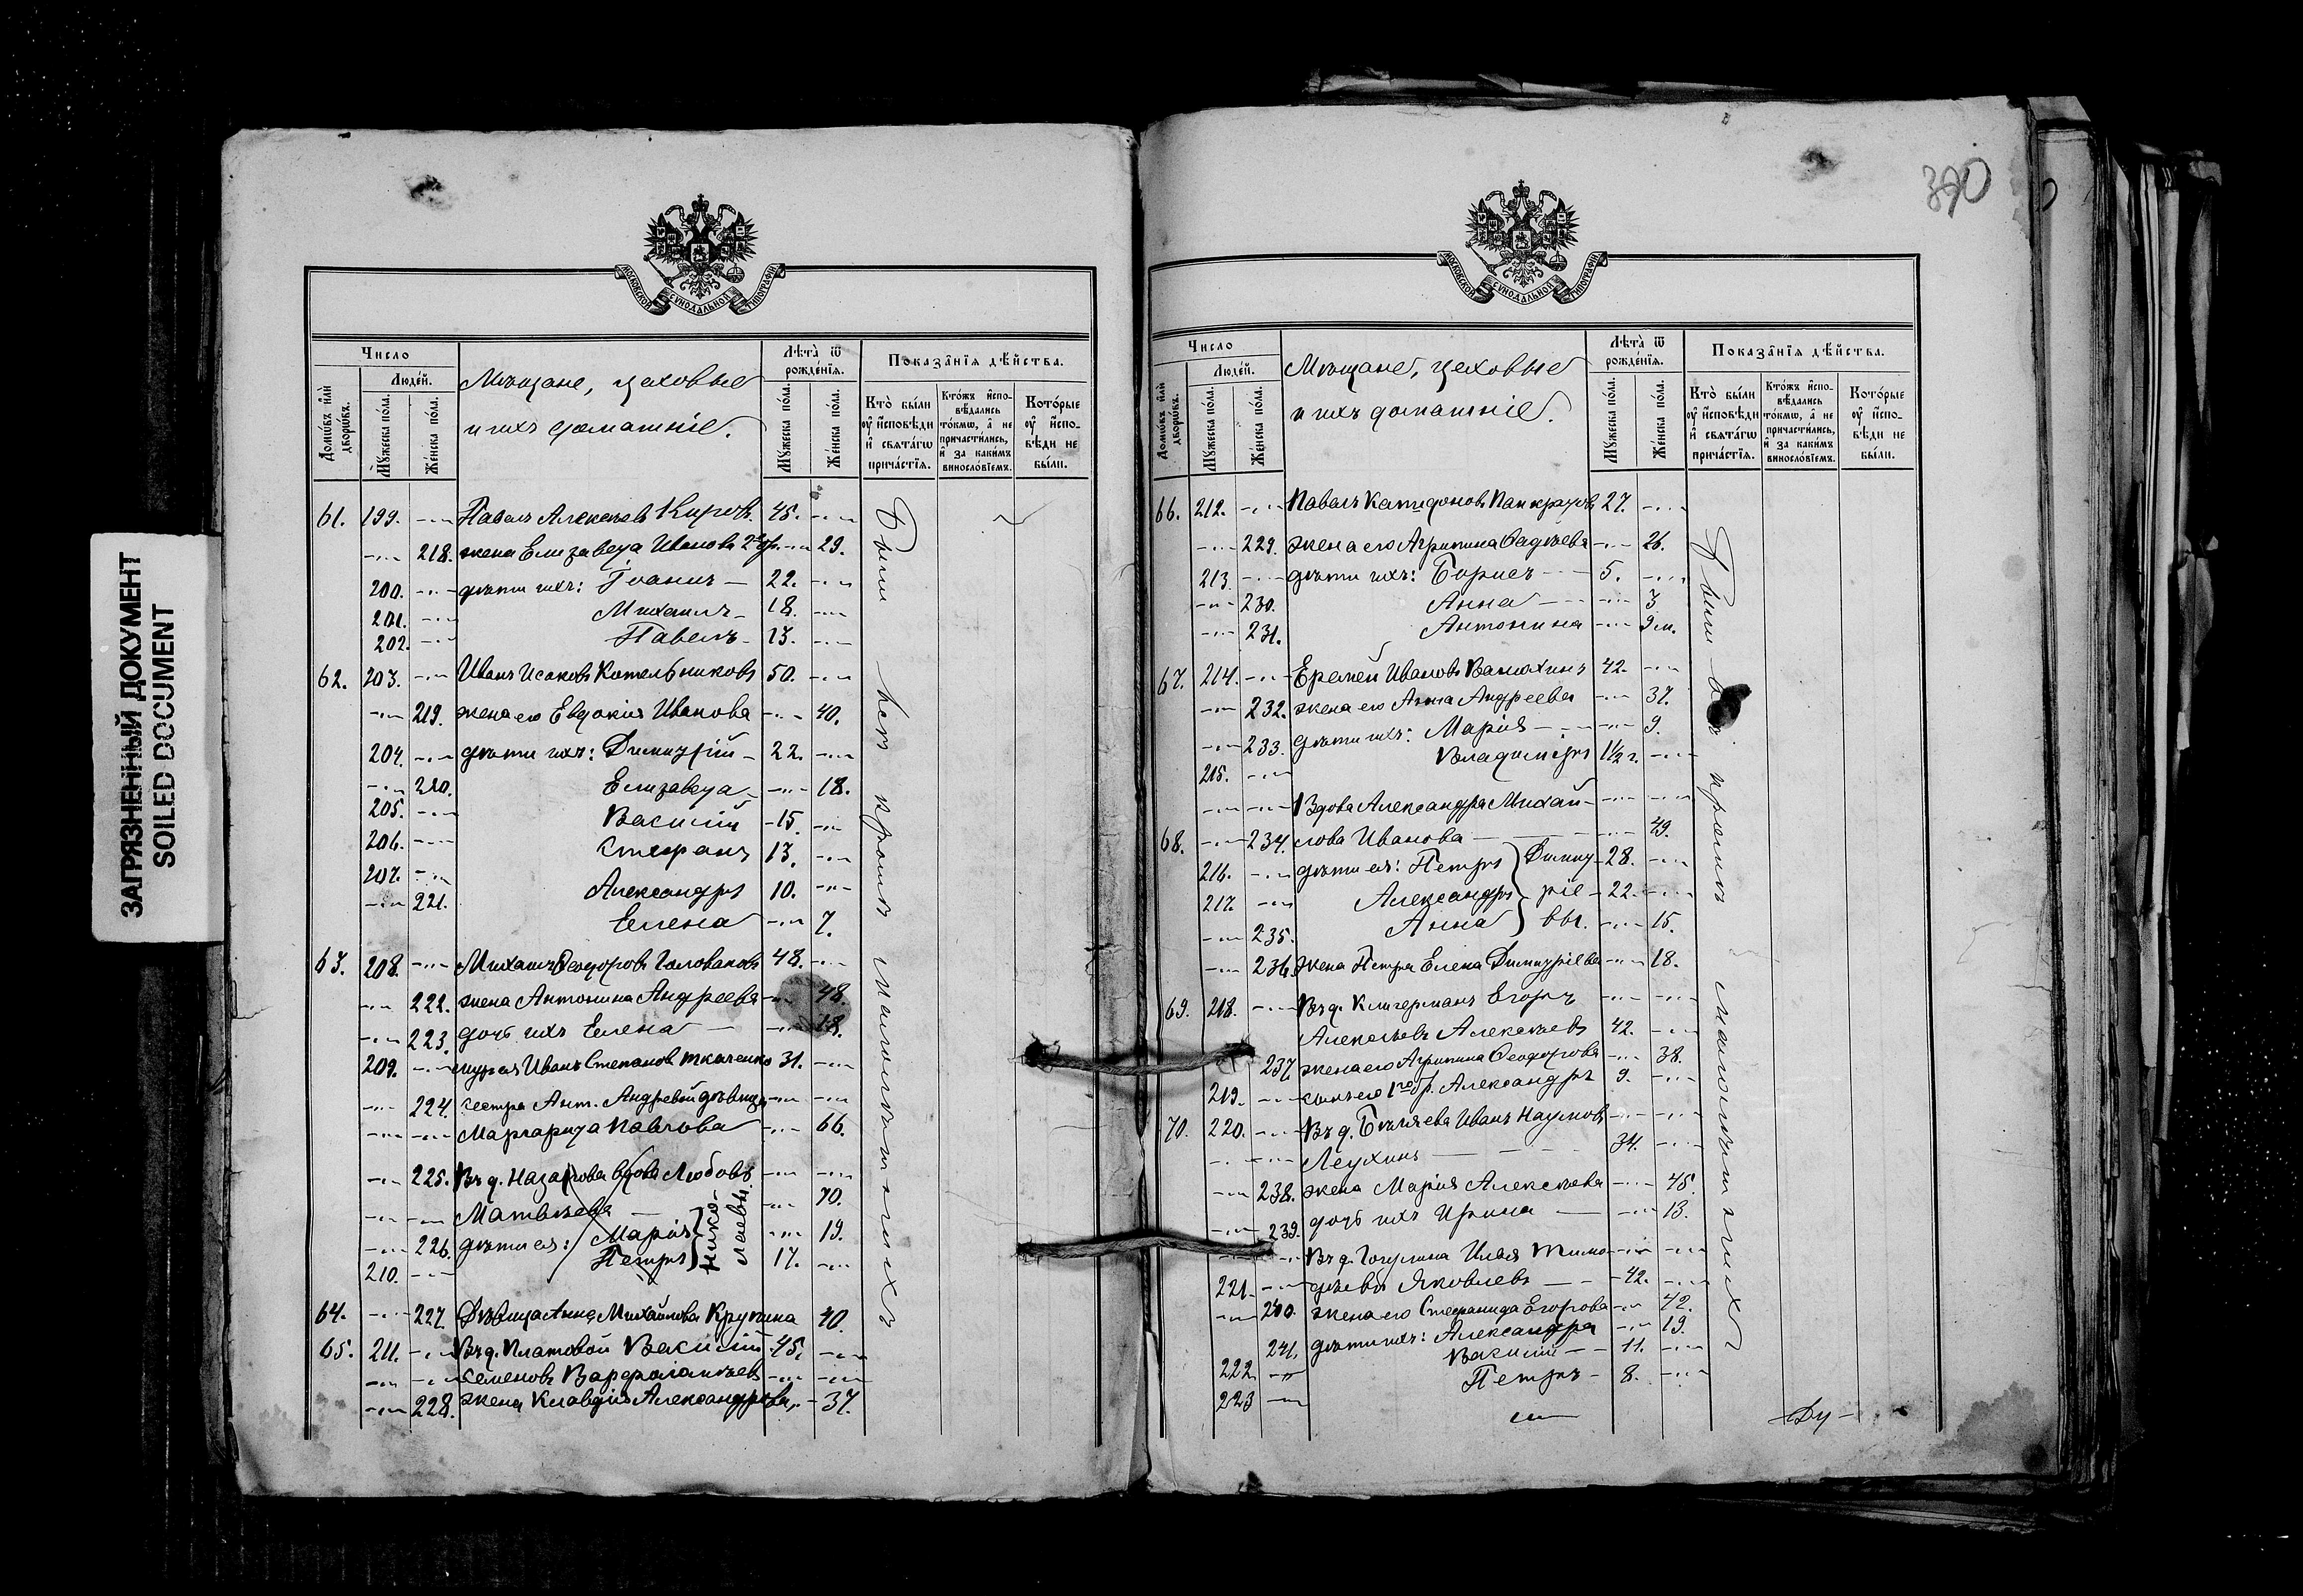 ЗАГРЯЗНЕННЫЙ ДОКУМЕНТ
SOILED DOCUMENT
МОСКОВСКОЙ СѴНОДАЛЬНОЙ ТИПОГРАФІИ
Число
Людей.
Домѡвъ или дворѡвъ.
Мужеска пола.
Женска пола.
Мѣщане, цеховые
и ихъ домашніе.
Лѣта ѿ рожденія.
Мужеска пола.
Женска пола.
Показанія действа.
Кто были оу исповѣди и свѧтагѡ причастія.
Ктожъ исповѣдались токмѡ, а не причастились, и за какимъ винословіемъ.
Которые оу исповѣди не были.
61. 199. Павелъ Алексѣевъ Кировъ. 45.
218. жена Елизавета Иванова 2го бр. 29.
200. дѣти ихъ: Іоаннъ 22.
201. Михаилъ 18.
202. Павелъ 13.
62. 203. Иванъ Исаковъ Котельниковъ 50.
219. жена его Евдокія Иванова 40.
204. дѣти ихъ: Димитрій 22.
220. Елизавета 18.
205. Василій 15.
206. Стефанъ 13.
207. Александръ 10.
221. Елена 7.
63. 208. Михаилъ Ѳеодоровъ Головановъ 48.
222. жена Антонина Андреева 48.
223. дочь ихъ Елена 18.
209. Иванъ Степановъ Ткаченко 31.
224. сестра Ант. Андреевой дѣвица
Маргарита Павлова 66.
225. Въ д. Назарова вдова Любовь
Матвѣева 70.
226. дѣти ея: Марія 19.
210. Петръ 17.
Николаевы.
64. 227. Дѣвица Анна Михайлова Крупина 40.
65. 211. Въ д. Платовой Василій 45.
Семеновъ Варфоломѣевъ
228. жена Клавдія Александрова 37.
Были всѣ кромѣ малолѣтнихъ
390
МОСКОВСКОЙ СѴНОДАЛЬНОЙ ТИПОГРАФІИ
Число
Людей.
Домѡвъ или дворѡвъ.
Мужеска пола.
Женска пола.
Мѣщане, цеховые
и ихъ домашніе.
Лѣта ѿ рожденія.
Мужеска пола.
Женска пола.
Показанія действа.
Кто были оу исповѣди и свѧтагѡ причастія.
Ктожъ исповѣдались токмѡ, а не причастились, и за какимъ винословіемъ.
Которые оу исповѣди не были.
66. 212. Павелъ Панкратовъ 27.
229. жена его Агрипина Фадѣева 26.
213. дѣти ихъ: Борисъ 5.
230. Анна 3.
231. Антонина 9 м.
67. 214. Еремей Ивановъ Ванюхинъ 42.
232. жена его Анна Андреева 37.
233. дѣти ихъ: Марія 9.
215. Владиміръ 1 1/2 г.
Вдова Александра Михай-
68. 234. лова Иванова 49.
216. дѣти ея: Петръ 28.
217. Александръ 22.
235. Анна 15.
Димитріевы.
236. жена Петра Елена Димитріева 18.
69. 218. Въ д. Клигерманъ Егоръ
Алексѣевъ Алексѣевъ 42.
237. жена его Агрипина Ѳеодорова 38.
219. сынъ его 1го бр. Александръ 9.
70. 220. Въ д. Бѣляева Иванъ Наумовъ
Леухинъ 34.
238. жена Марія Алексѣева 45.
239. дочь ихъ Ирина 13.
Въ д. Илья Тимо-
221. ѳѣевъ Яковлевъ 42.
240. жена его Стефанида Егорова 42.
241. дѣти ихъ: Александра 19.
222. Василій 11.
223. Петръ 8.
Были всѣ кромѣ малолѣтнихъ